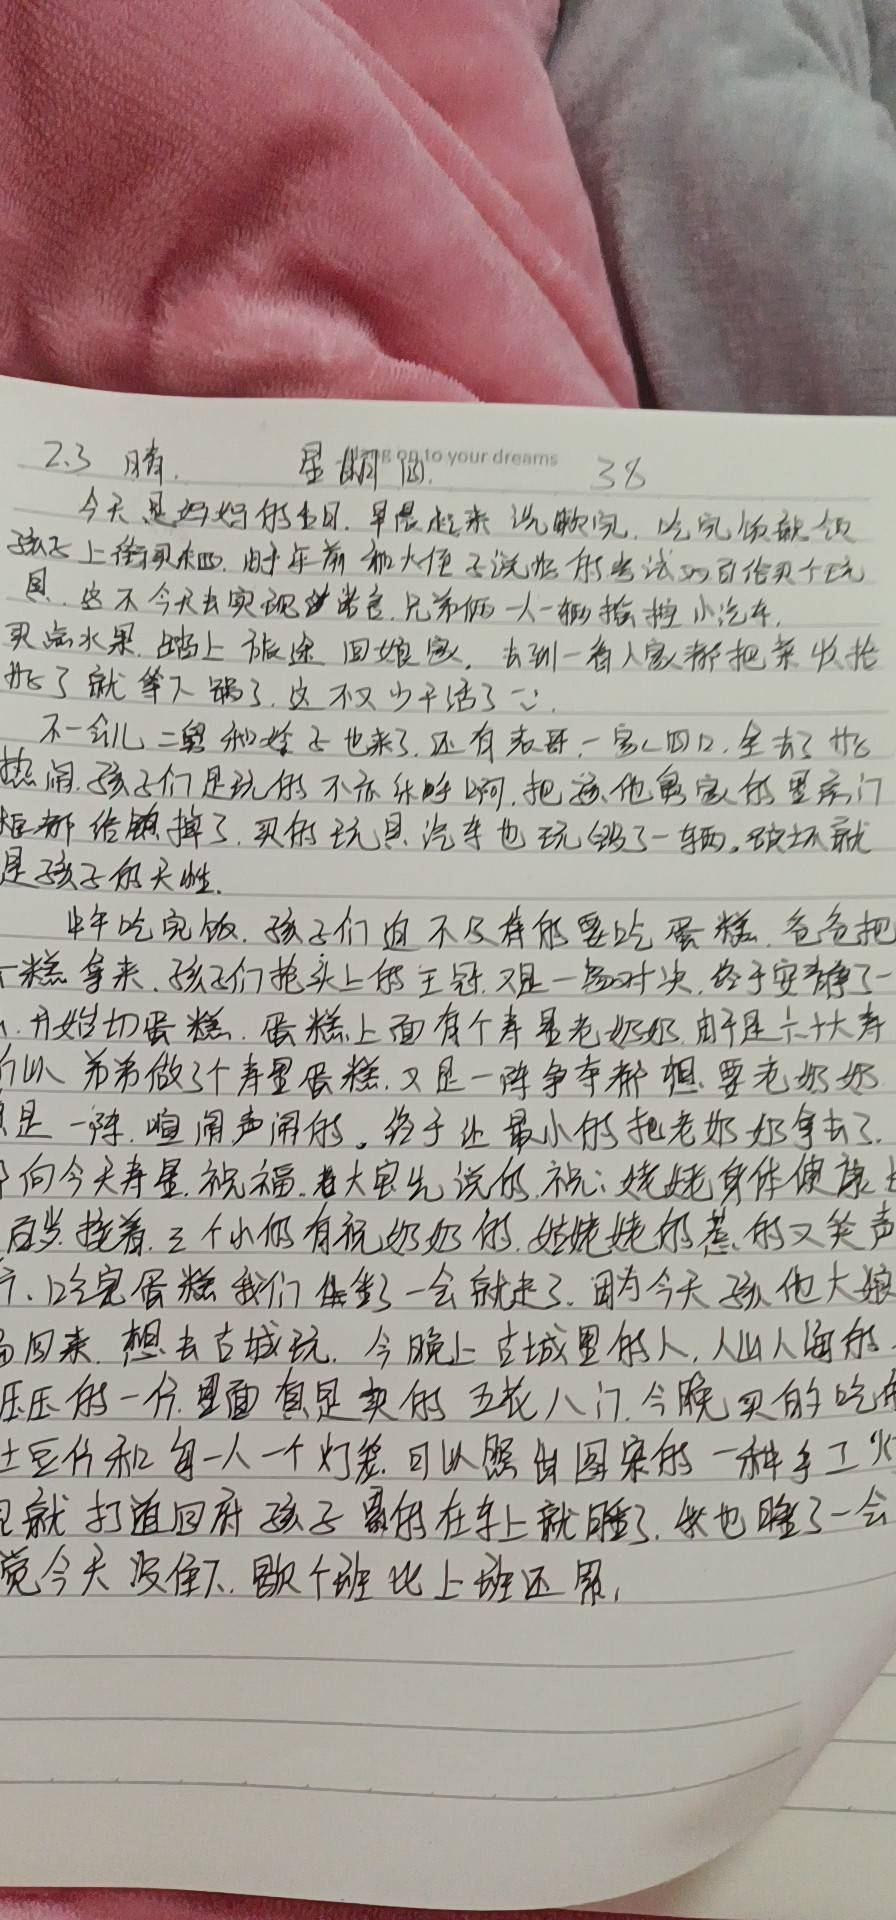 2.3 晴. 星期四. 38
Hang on to your dreams
今天是妈妈的生日. 早晨起来洗漱完. 吃完饭就领
孩子上街买东西. 由于年前和大侄子说好的考试 百给买个玩
具. 这不今天去实现诺言. 兄弟俩一人一辆 小汽车.
买点水果. 踏上旅途回娘家. 去到一看人家都把菜收拾
好了就等下锅了. 这不又少干活了
不一会儿二舅和妗子也来了. 还有表哥一家四口. 全去了好
热闹. 孩子们是玩的不亦乐乎啊. 把孩他舅家的里房门
都给 掉了. 买的玩具汽车也玩 了一辆。破坏就
是孩子的天性.
中午吃完饭. 孩子们迫不及待的要吃蛋糕. 爸爸把
糕拿来. 孩子们抢头上的王冠. 又是一场对决. 终于安静了一
. 开始切蛋糕. 蛋糕上面有个寿星老奶奶. 由于是六十大寿
所以弟弟做了个寿星蛋糕. 又是一阵争夺都想要老奶奶
是一阵. 喧闹声闹的。终于让最小的把老奶奶拿去了.
向今天寿星. 祝福. 老大宝先说的. 祝: 姥姥身体健康
百岁. 接着. 三个小的有祝奶奶的. 姑姥姥的. 惹的又笑声
. 吃完蛋糕我们 坐了一会就走了. 因为今天孩他大娘
回来. 想去古城玩. 今晚上古城里的人. 人山人海的.
压压的一片. 里面真是卖的五花八门. 今晚买的吃
土豆片和每一人一个灯笼. 可以照出图案的一种手工"
就打道回府孩子累的在车上就睡了. 我也睡了一会
觉今天没住下. 歇个班比上班还累,